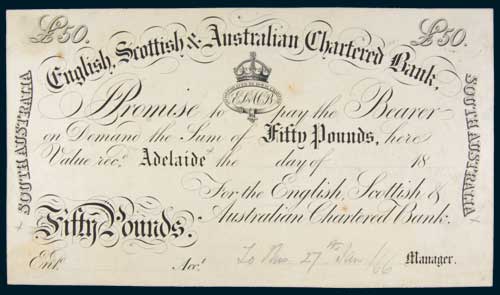 £50. £50.
English, Scottish & Australian Chartered Bank,
SOUTH AUSTRALIA
SOUTH AUSTRALIA
I Promise to pay the Bearer
on Demand the Sum of Fifty Pounds, here
Value rec.d Adelaide the day of 18
For the English, Scottish &
Australian Chartered Bank.
Fifty Pounds.
Ent.d Acc.t 27th Jan /66 Manager.